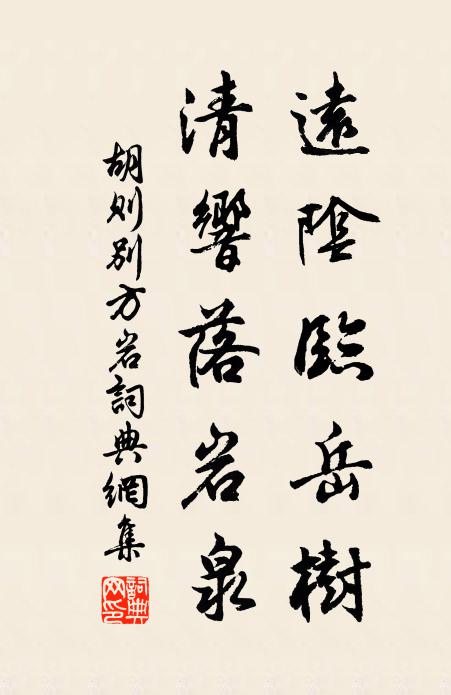 遠陰臨岳樹
清響落岩泉
胡则别方岩詞典網集
詞典網印